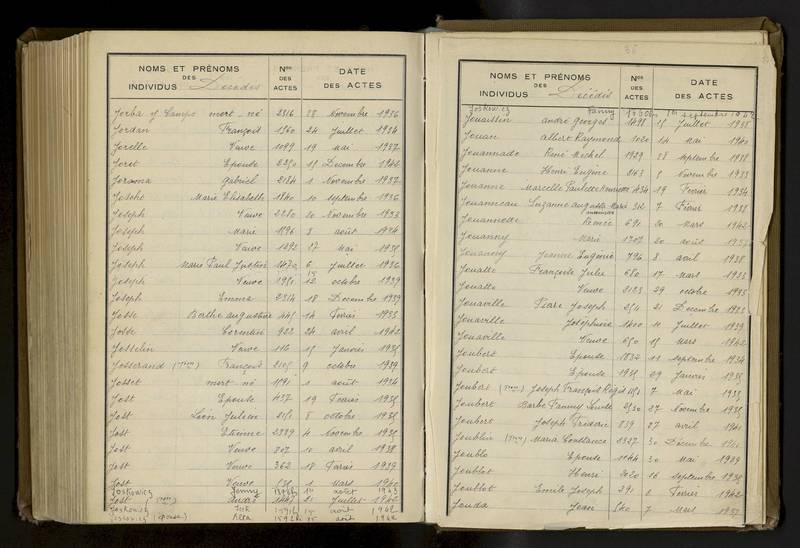 NOMS ET PRÉNOMS DES INDIVIDUS Décédés Nos DES ACTES DATE DES ACTES
Jorba y Campo mort né 2316 28 Novembre 1936
Jordan François 1360 24 Juillet 1934
Jorelle Veuve 1099 19 Mai 1937
Joret Epouse 2250 15 Decembre 1942
Joroma Gabriel 2184 1 Novembre 1937
Josche Marie Elisabeth 1840 10 septembre 1936
Joseph Veuve 2280 20 Novembre 1933
Joseph Marie 1596 3 août 1934
Joseph Veuve 1292 27 Mai 1935
Joseph Marie Paul Justin 1470 6 Juillet 1936
Joseph Veuve 1981 12 octobre 1939
Joseph Emma 2314 18 Decembre 1939
Josse Berthe augustine 445 14 Fevrier 1933
Josse Corentin 922 24 avril 1942
Josselin Veuve 116 15 Janvier 1935
Josserand François 2105 9 octobre 1939
Josset mort né 1591 1 août 1934
Jost Epouse 437 19 Fevrier 1935
Jost Léon Julien 2151 8 octobre 1935
Jost Etienne 2389 4 Novembre 1935
Jost Veuve 807 10 avril 1938
Jost Veuve 362 18 Fevrier 1939
Jost Veuve 1 Mars 1940
Joskowicz Fanny 1942
Jost André 21 Juillet 1942
Joskowicz août 1942
Joskowicz (épouse) août 1942
NOMS ET PRÉNOMS DES INDIVIDUS Décédés Nos DES ACTES DATE DES ACTES
Joskowicz Fanny septembre 1942
Jouassin andré georges 1498 15 Juillet 1938
Jouan albert Raymond 1020 14 Mai 1940
Jouannade René Michel 1929 28 septembre 1938
Jouanne Henri Eugène 243 8 Novembre 1933
Jouanne 434 19 Fevrier 1934
Jouanneau Suzanne augusta Marie 362 7 Février 1938
Jouannede Renée 691 20 Mars 1942
Jouanny Marie 1707 20 août
Jouanny Jeanne Eugénie 796 8 avril 1938
Jouatte Françoise Julie 680 17 Mars 1933
Jouatte Veuve 2123 29 octobre 1933
Jouaville Joseph 254 21 Decembre 1933
Jouaville Joséphine 1400 10 Juillet 1939
Jouaville Veuve 650 15 Mars 1942
Joubert Epouse 1832 11 septembre 1934
Joubert Epouse 29 Janvier 1935
Joubert Joseph François Régis 7 Mai 1935
Joubert Barbe Fanny 2530 27 Novembre 1935
Joubert Joseph Fréderic 839 27 avril 1941
Joublin Maria Constance 2327 30 Décembre
Jouble Epouse 1144 30 Mai 1939
Joublot Henri 2020 16 septembre
Joublot Emile Joseph 391 8 Fevrier 1942
Jouda Jean 540 7 Mars 1937